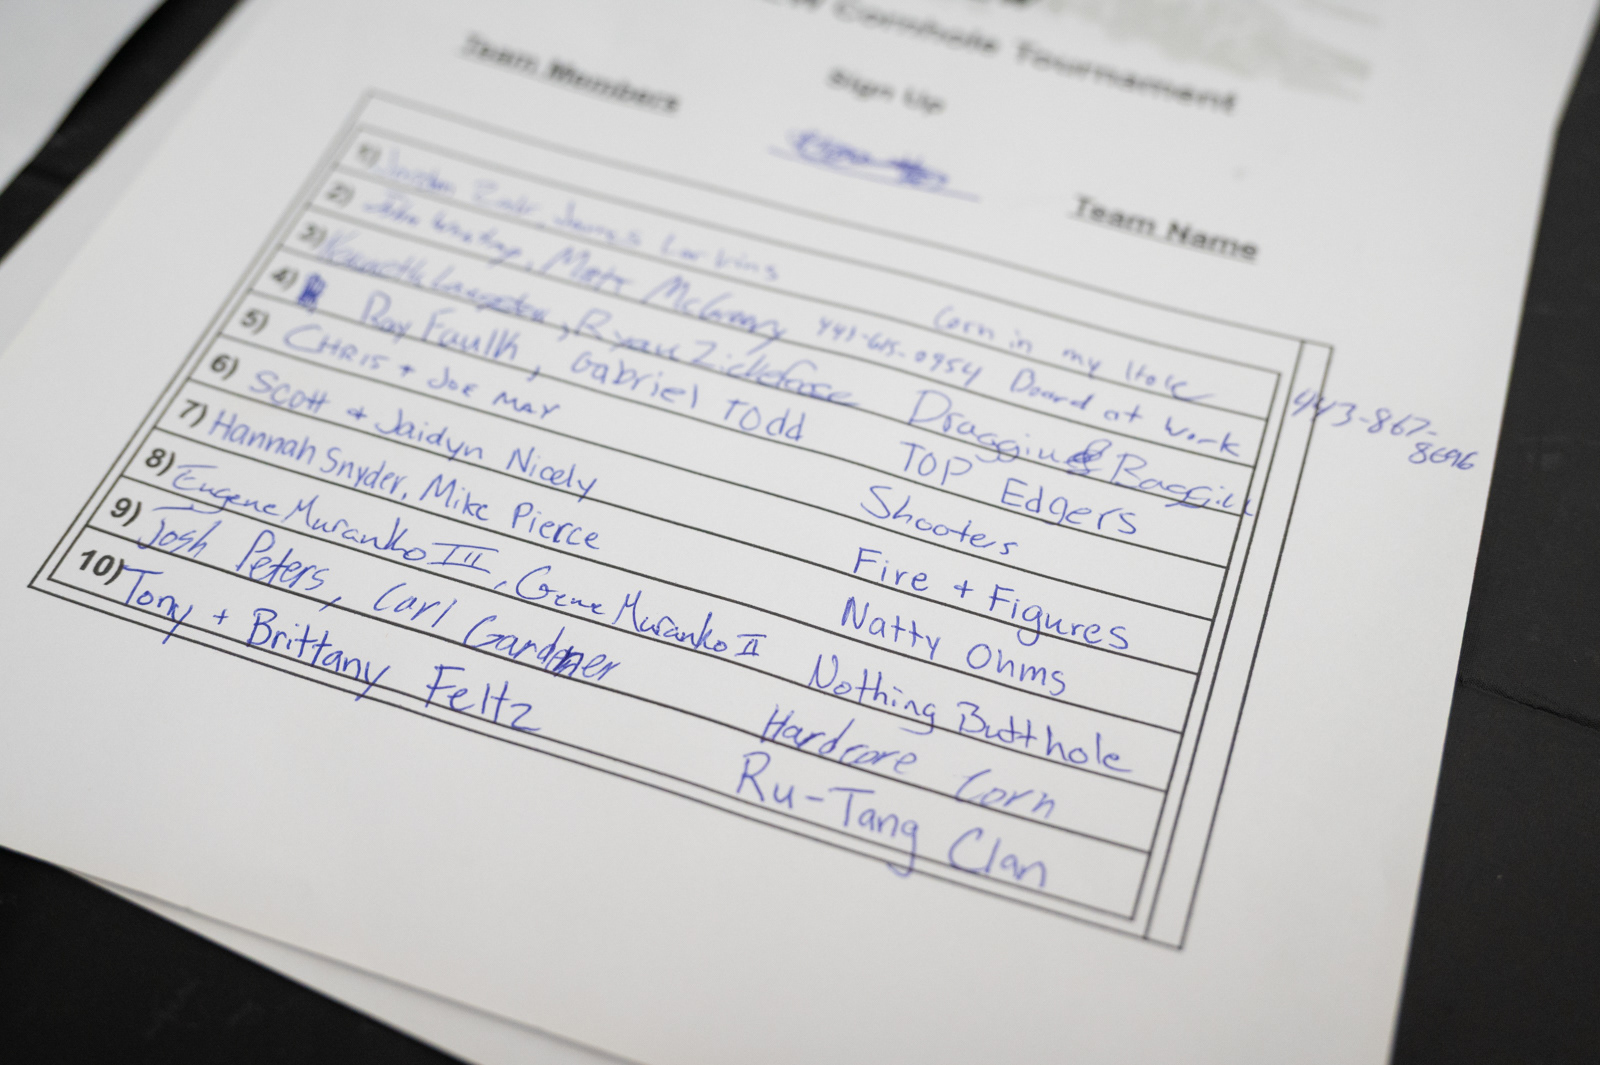 Cornhole Tournament
Sign Up
Team Members
Team Name
1) James Larkins Corn in my Hole
2) Matt McGreevy 443-615-0954 Board at Work
3) Kenneth Ryan Zickefoose Draggin & Baggin 443-867-
8696
4) Ray Faulk, Gabriel Todd TOP Edgers
5) CHRIS + JOE MAY Shooters
6) Scott + Jaidyn Nicely Fire + Figures
7) Hannah Snyder, Mike Pierce Natty Ohms
8) Eugene Muranko III, Gene Muranko II Nothing Butthole
9) Josh Peters, Carl Gardner Hardcore Corn
10) Tony + Brittany Feltz Ru-Tang Clan